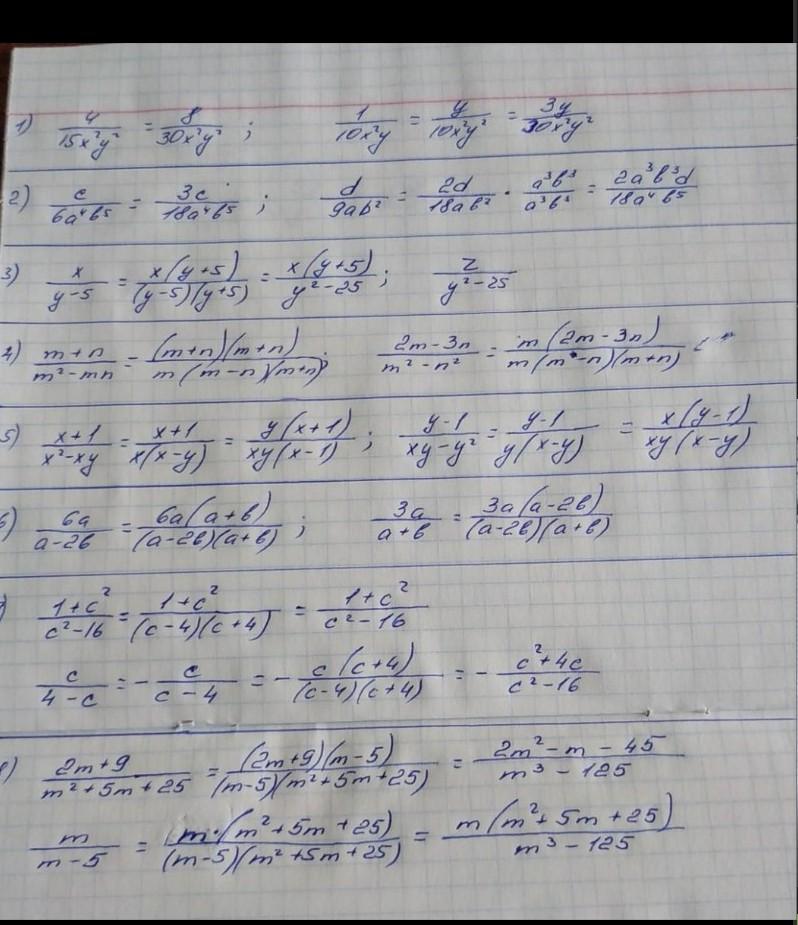 1) 4/(15x²y²) = 8/(30x²y²) ; 1/(10x²y) = y/(10x²y²) = 3y/(30x²y²)
2) c/(6a⁴b⁵) = 3c/(18a⁴b⁵) ; d/(9ab²) = 2d/(18ab²) · a³b³/(a³b³) = 2a³b³d/(18a⁴b⁵)
3) x/(y-5) = x(y+5)/((y-5)(y+5)) = x(y+5)/(y²-25) ; z/(y²-25)
4) (m+n)/(m²-mn) = (m+n)(m+n)/(m(m-n)(m+n)) ; (2m-3n)/(m²-n²) = m(2m-3n)/(m(m-n)(m+n))
5) (x+1)/(x²-xy) = (x+1)/(x(x-y)) = y(x+1)/(xy(x-1)) ; (y-1)/(xy-y²) = (y-1)/(y(x-y)) = x(y-1)/(xy(x-y))
6) 6a/(a-2b) = 6a(a+b)/((a-2b)(a+b)) ; 3a/(a+b) = 3a(a-2b)/((a-2b)(a+b))
) (1+c²)/(c²-16) = (1+c²)/((c-4)(c+4)) = (1+c²)/(c²-16)
c/(4-c) = - c/(c-4) = - c(c+4)/((c-4)(c+4)) = - (c²+4c)/(c²-16)
8) (2m+9)/(m²+5m+25) = (2m+9)(m-5)/((m-5)(m²+5m+25)) = (2m²-m-45)/(m³-125)
m/(m-5) = m·(m²+5m+25)/((m-5)(m²+5m+25)) = m(m²+5m+25)/(m³-125)